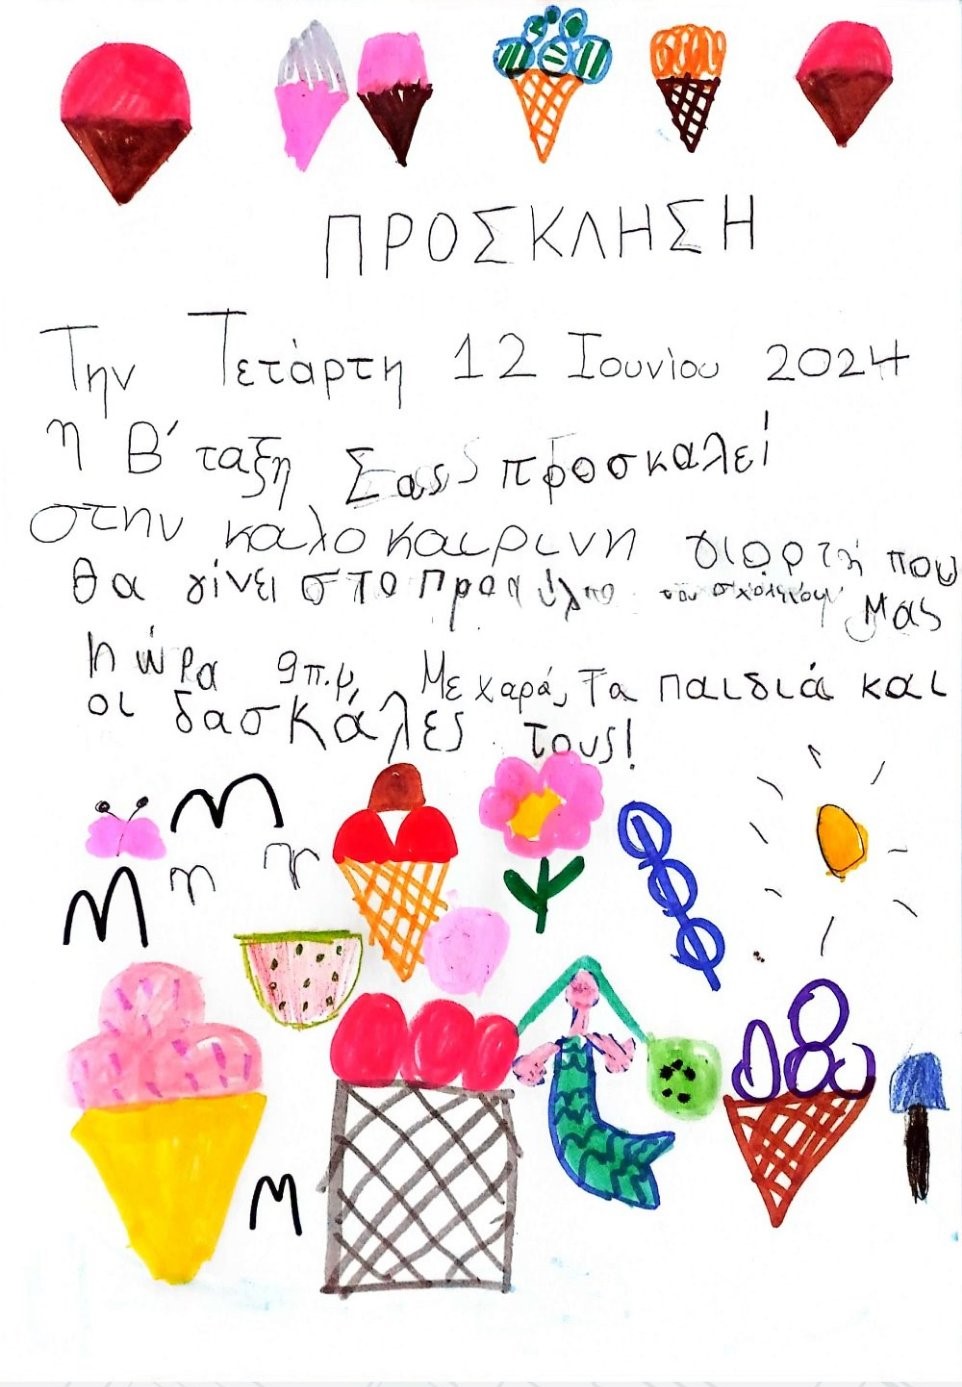 ΠΡΟΣΚΛΗΣΗ
Την Τετάρτη 12 Ιουνίου 2024
η Β΄ ταξη Σας προσκαλεί
στην καλοκαιρινη γιορτή που
θα γίνει στο προαύλιο του σχολείου μας
η ώρα 9π.μ. Με χαρά, Τα παιδιά και
οι δασκάλες τους!